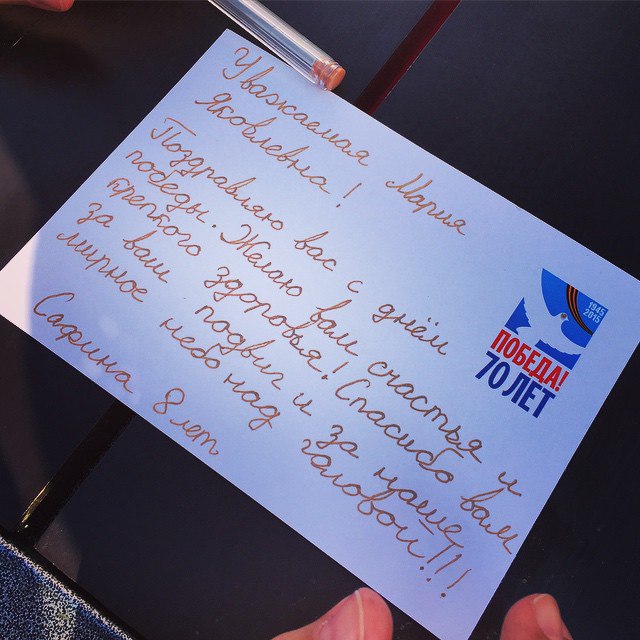 Уважаемая Мария
Яковлевна!
Поздравляю вас с днём
победы. Желаю вам счастья и
крепкого здоровья! Спасибо вам
за ваш подвиг и за наше
мирное небо над головой!!!
Сафина 8 лет
1945
2015
ПОБЕДА!
70 ЛЕТ